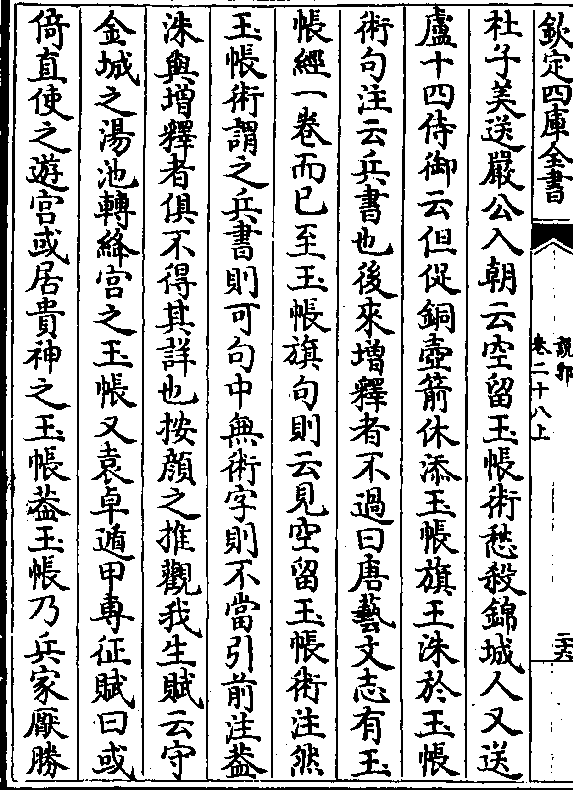 欽定四庫全書
說郛
卷二十八上
二六
杜子美送嚴公入朝云空留玉帳術愁殺錦城人又送
盧十四侍御云但促銅壺箭休添玉帳旗王洙於玉帳
術句注云兵書也後來增釋者不過曰唐藝文志有玉
帳經一卷而已至玉帳旗句則云見空留玉帳術注然
玉帳術謂之兵書則可句中無術字則不當引前注葢
洙與增釋者俱不得其詳也按顔之推觀我生賦云守
金城之湯池轉絳宮之玉帳又袁卓遁甲專征賦曰或
倚直使之遊宮或居貴神之玉帳葢玉帳乃兵家厭勝